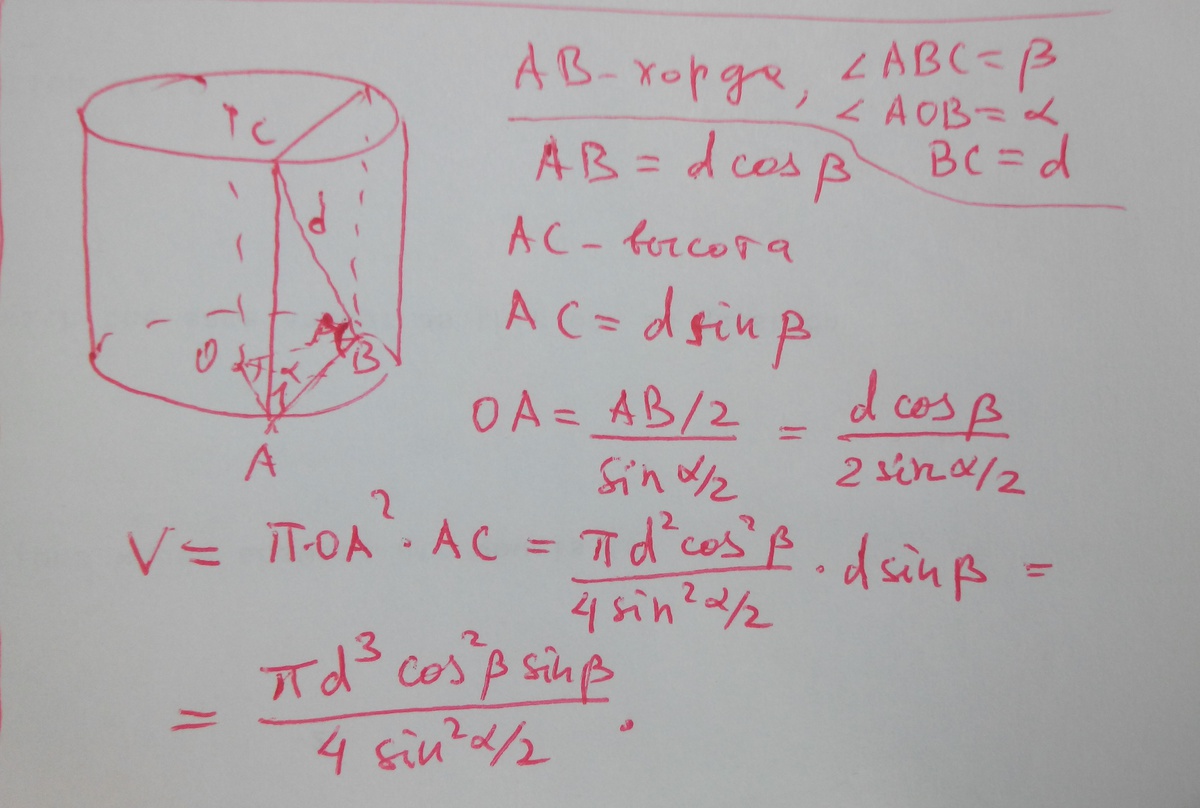 AB - хорда, ∠ABC = β
∠AOB = α
AB = d cos β
BC = d
AC - высота
AC = d sin β
OA = (AB/2)/(sin α/2) = (d cos β)/(2 sin α/2)
V = π·OA² · AC = (πd² cos² β)/(4 sin² α/2) · d sin β =
= (πd³ cos² β sin β)/(4 sin² α/2) .
C
d
O
α
B
A